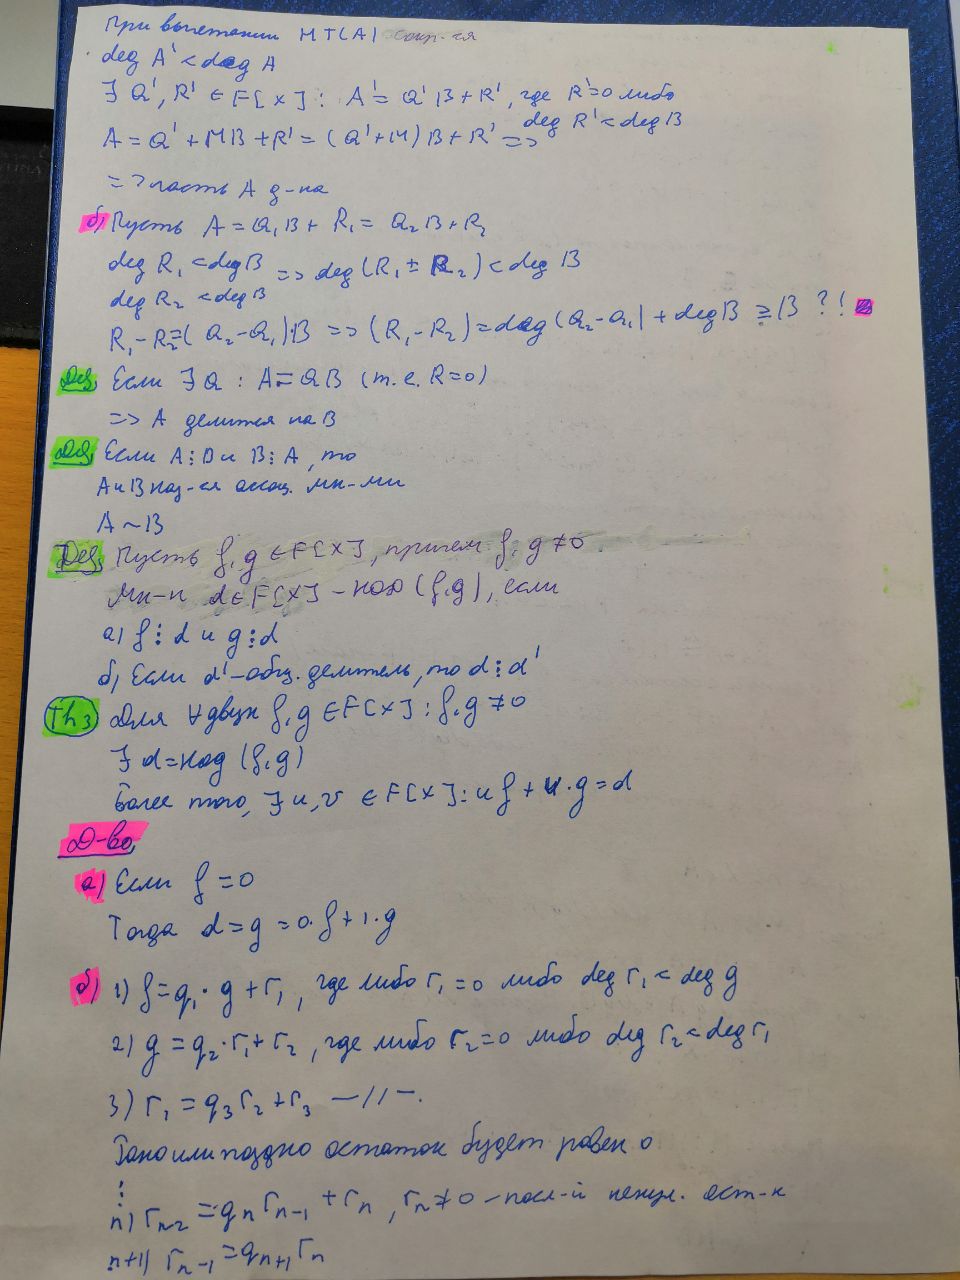 При вычетании MT(A) сокр-ся
deg A' < deg A
∃ Q', R' ∈ F[x] : A' = Q'B + R', где R'=0 либо
deg R' < deg B
A = Q' + MB + R' = (Q'+M)B + R' =>
=> часть A д-на
б) Пусть A = Q₁B + R₁ = Q₂B + R₂
deg R₁ < deg B => deg (R₁ ± R₂) < deg B
deg R₂ < deg B
R₁ - R₂ = (Q₂ - Q₁)·B => (R₁ - R₂) = deg (Q₂ - Q₁) + deg B ≥ B ?!
Def Если ∃ Q : A = QB (т.е. R=0)
=> A делится на B
Def Если A⋮B и B⋮A, то
A и B наз-ся ассоц. мн-ми
A ~ B
Def Пусть f, g ∈ F[x], причем f, g ≠ 0
Мн-н d ∈ F[x] - НОД (f, g), если
а) f⋮d и g⋮d
б) Если d' - общ. делитель, то d⋮d'
Th 3 Для ∀ двух f, g ∈ F[x] : f, g ≠ 0
∃ d = НОД (f, g)
Более того, ∃ u, v ∈ F[x] : u f + v·g = d
Д-во
а) Если f = 0
Тогда d = g = 0·f + 1·g
б) 1) f = q₁·g + r₁, где либо r₁ = 0 либо deg r₁ < deg g
2) g = q₂·r₁ + r₂, где либо r₂ = 0 либо deg r₂ < deg r₁
3) r₁ = q₃r₂ + r₃ —//—.
Рано или поздно остаток будет равен 0
⋮
n) rₙ₋₂ = qₙrₙ₋₁ + rₙ, rₙ ≠ 0 - посл-й ненул. ост-к
n+1) rₙ₋₁ = qₙ₊₁rₙ